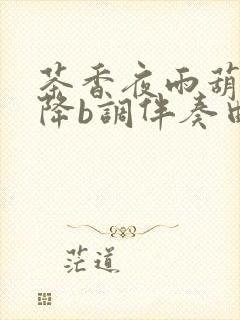 茶香夜雨葫
降b調伴奏曲
茫道